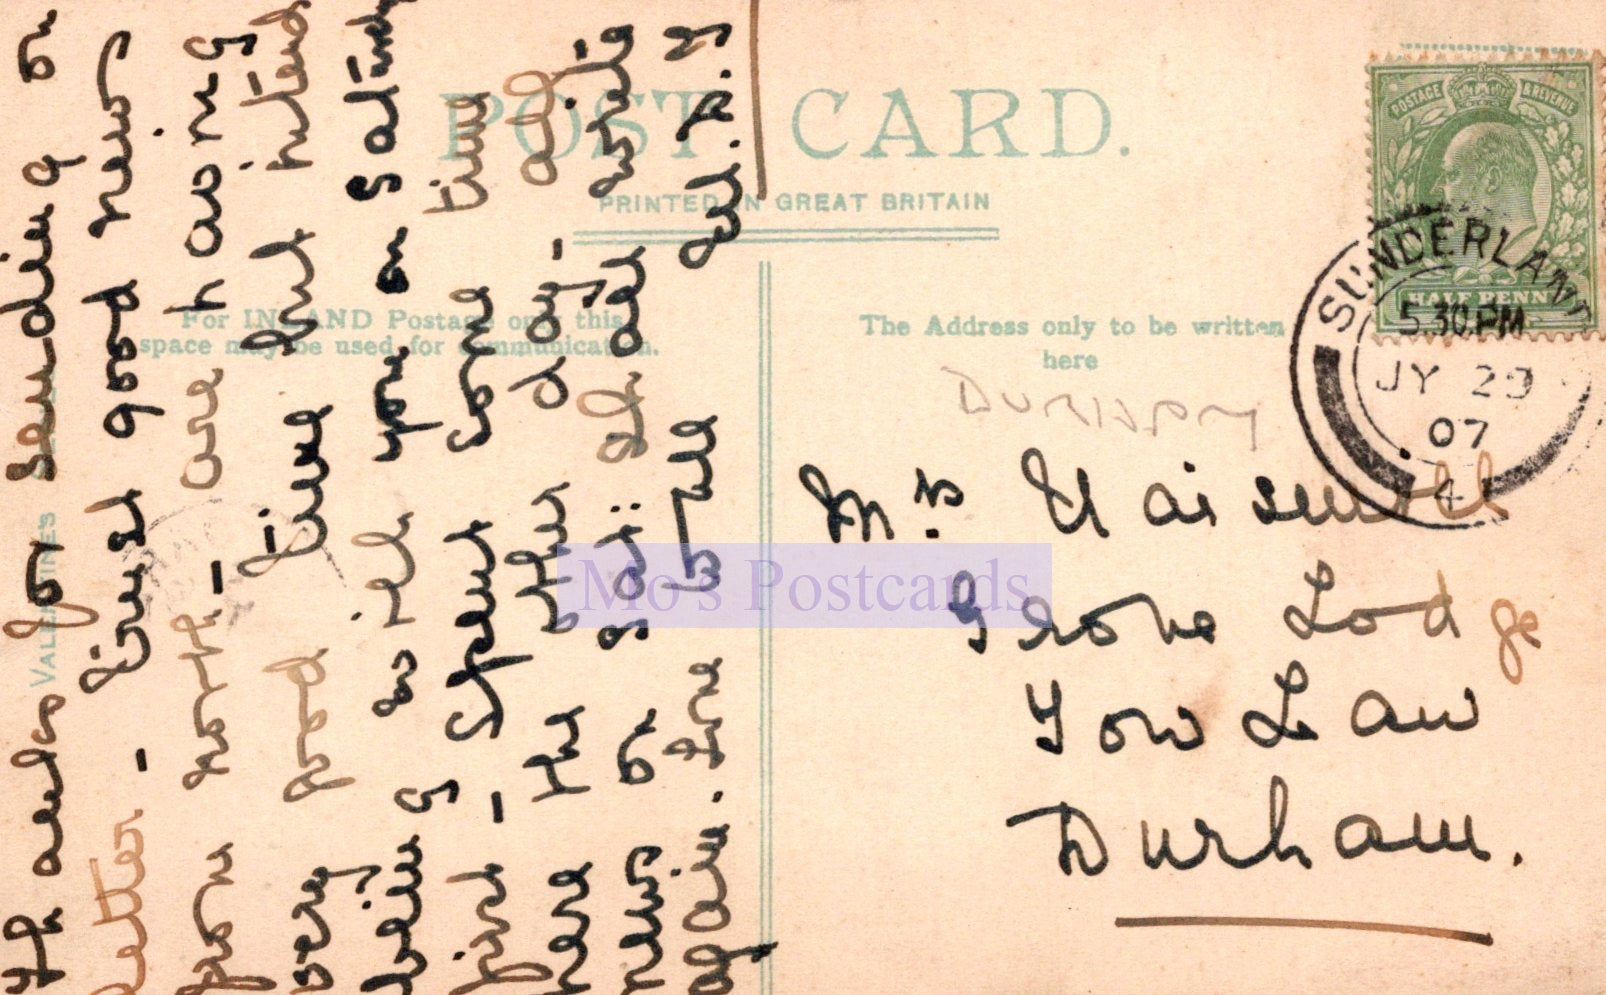 Thanks for sending on
letter - Great good news
from north - are having
very good time but intend
being with you on Saturday
first - Spent some time
here the other day - all
news on Sat: shall write
again. Love to all
POST CARD.
PRINTED IN GREAT BRITAIN
For INLAND Postage only this
space may be used for communication.
The Address only to be written
here
VALENTINE'S
POSTAGE & REVENUE
HALF PENNY
SUNDERLAND
5.30 PM
JY 29
07
4
DURHAM
Mrs
Grove Lodge
Tow Law
Durham.
Mo's Postcards